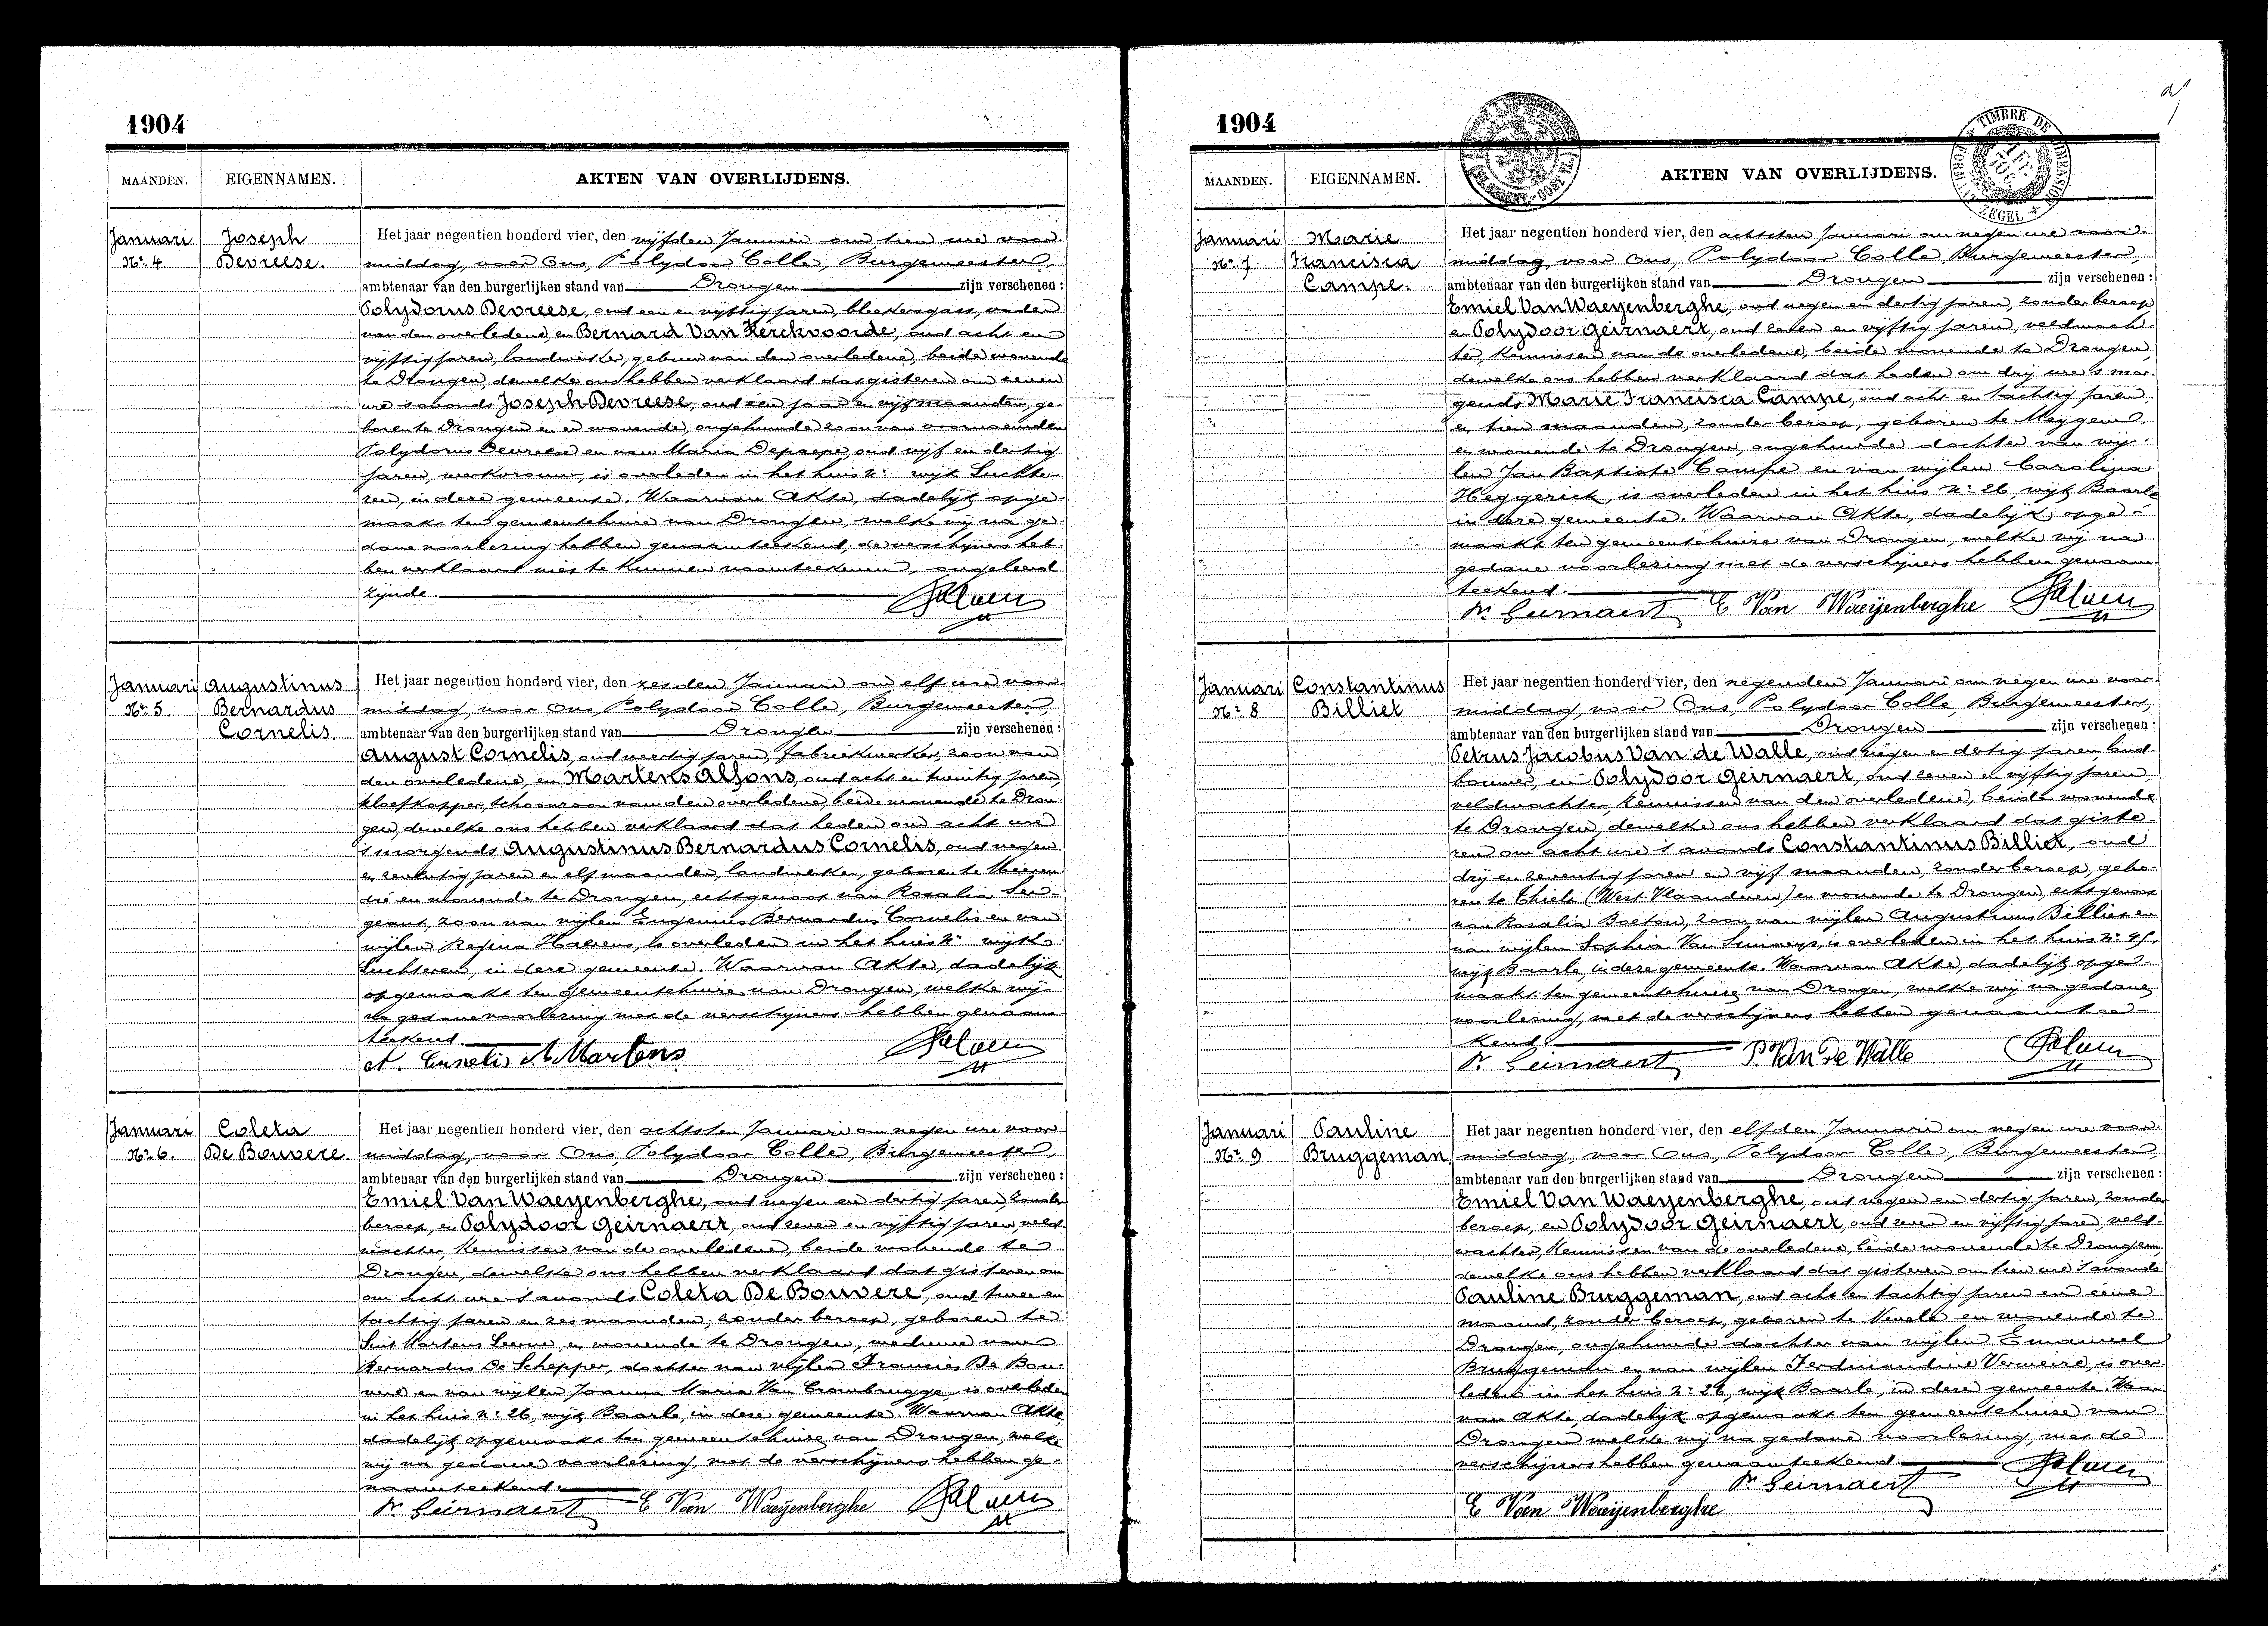 1904
MAANDEN. EIGENNAMEN. AKTEN VAN OVERLIJDENS.
Januari
Nr 4
Joseph
Devreese.
Het jaar negentien honderd vier, den vijfden Januari om tien ure voor-
middag, voor Ons, Polydoor Colle, Burgemeester,
ambtenaar van den burgerlijken stand van Drongen zijn verschenen:
Polydorus Devreese, oud een en vijftig jaren, bleekersgast, vader
van den overledene, en Bernard Van Kerckvoorde, oud acht en
vijftig jaren, landwerker, gebuur van den overledene, beide wonende
te Drongen, dewelke ons hebben verklaard dat gisteren om zeven
ure 's avonds Joseph Devreese, oud één jaar en vijf maanden, ge-
boren te Drongen en er wonende, ongehuwde zoon van voornoemden
Polydorus Devreese en van Maria Depaepe, oud vijf en dertig
jaren, werkvrouw, is overleden in het huis Nr wijk Luchte-
ren, in deze gemeente. Waarvan Akte, dadelijk opge-
maakt ten gemeentehuize van Drongen, welke wij na ge-
dane voorlezing hebben genaamteekend; de verschijners heb-
ben verklaard niet te kunnen naamteekenen, ongeleerd
zijnde.
Januari
Nr 5
Augustinus
Bernardus
Cornelis
Het jaar negentien honderd vier, den zesden Januari om elf ure voor-
middag, voor Ons, Polydoor Colle, Burgemeester,
ambtenaar van den burgerlijken stand van Drongen zijn verschenen:
August Cornelis, oud veertig jaren, fabriekwerker, zoon van
den overledene, en Martens Alfons, oud acht en twintig jaren,
kloefkapper, schoonzoon van den overledene, beide wonende te Dron-
gen, dewelke ons hebben verklaard dat heden om acht ure
's morgends Augustinus Bernardus Cornelis, oud negen
en zeventig jaren en elf maanden, landwerker, geboren te Meeren-
dré en wonende te Drongen, echtgenoot van Rosalia Ser-
geant, zoon van wijlen Eugenius Bernardus Cornelis en van
wijlen Regina is overleden in het huis Nr wijk
Luchteren, in deze gemeente. Waarvan Akte, dadelijk
opgemaakt ten gemeentehuize van Drongen, welke wij
na gedane voorlezing met de verschijners hebben genaam-
teekend
A. Cornelis A Martens
Januari
Nr 6.
Coleta
De Bouvere.
Het jaar negentien honderd vier, den achtsten Januari om negen ure voor-
middag, voor Ons, Polydoor Colle, Burgemeester,
ambtenaar van den burgerlijken stand van Drongen zijn verschenen:
Emiel Van Waeyenberghe, oud negen en dertig jaren, zonder
beroep, en Polydoor Geirnaert, oud zeven en vijftig jaren, veld-
wachter, kennissen van de overledene, beide wonende te
Drongen, dewelke ons hebben verklaard dat gisteren om
om acht ure 's avonds Coleta De Bouvere, oud twee en
tachtig jaren en zes maanden, zonder beroep, geboren te
Sint Martens Leerne en wonende te Drongen, weduwe van
Bernardus De Schepper, dochter van wijlen Francies De Bou-
vere en van wijlen Joanna Maria Van Crombrugge, is overleden
in het huis Nr 26, wijk Baarle, in deze gemeente. Waarvan Akte,
dadelijk opgemaakt ten gemeentehuize van Drongen, welke
wij na gedane voorlezing, met de verschijners hebben ge-
naamteekend.
Pr Geirnaert E Van Waeyenberghe
1904
TIMBRE DE DIMENSION
ZEGEL
MAANDEN. EIGENNAMEN. AKTEN VAN OVERLIJDENS.
Januari
Nr 7
Marie
Francisca
Campe.
Het jaar negentien honderd vier, den achtsten Januari om negen ure voor-
middag, voor Ons, Polydoor Colle, Burgemeester,
ambtenaar van den burgerlijken stand van Drongen zijn verschenen:
Emiel Van Waeyenberghe, oud negen en dertig jaren, zonder beroep
en Polydoor Geirnaert, oud zeven en vijftig jaren, veldwach-
ter, kennissen van de overledene, beide wonende te Drongen,
dewelke ons hebben verklaard dat heden om drij ure 's mor-
gends Marie Francisca Campe, oud acht en tachtig jaren
en tien maanden, zonder beroep, geboren te Meygem
en wonende te Drongen, ongehuwde dochter van wij-
len Jan Baptiste Campe en van wijlen Carolina
Heggerick, is overleden in het huis Nr 26, wijk Baarle
in deze gemeente. Waarvan Akte, dadelijk opge-
maakt ten gemeentehuize van Drongen, welke wij na
gedane voorlezing met de verschijners hebben genaam-
teekend.
Pr Geirnaert E Van Waeyenberghe
Januari
Nr 8
Constantinus
Billiet
Het jaar negentien honderd vier, den negenden Januari om negen ure voor-
middag, voor Ons, Polydoor Colle, Burgemeester,
ambtenaar van den burgerlijken stand van Drongen zijn verschenen:
Petrus Jacobus Van de Walle, oud negen en dertig jaren, land-
bouwer, en Polydoor Geirnaert, oud zeven en vijftig jaren,
veldwachter, kennissen van den overledene, beide wonende
te Drongen, dewelke ons hebben verklaard dat giste-
ren om acht ure 's avonds Constantinus Billiet, oud
drij en zeventig jaren en vijf maanden, zonder beroep, gebo-
ren te Thielt (West-Vlaanderen) en wonende te Drongen, echtgenoot
van Rosalia zoon van wijlen Augustinus Billiet en
van wijlen Sophia Van is overleden in het huis Nr 45,
wijk Baarle, in deze gemeente. Waarvan Akte, dadelijk opge-
maakt ten gemeentehuize van Drongen, welke wij na gedane
voorlezing, met de verschijners hebben genaamtee-
kend.
Pr Geirnaert P. Van De Walle
Januari
Nr 9
Pauline
Bruggeman
Het jaar negentien honderd vier, den elfden Januari om negen ure voor-
middag, voor Ons, Polydoor Colle, Burgemeester,
ambtenaar van den burgerlijken stand van Drongen zijn verschenen:
Emiel Van Waeyenberghe, oud negen en dertig jaren, zonder
beroep, en Polydoor Geirnaert, oud zeven en vijftig jaren, veld-
wachter, kennissen van de overledene, beide wonende te Drongen,
dewelke ons hebben verklaard dat gisteren om tien ure 's avonds
Pauline Bruggeman, oud acht en tachtig jaren en eene
maand, zonder beroep, geboren te Nevele en wonende te
Drongen, ongehuwde dochter van wijlen Emanuel
Bruggeman en van wijlen Ferdinandine Vermeire, is over-
leden in het huis Nr 26, wijk Baarle, in deze gemeente. Waar-
van Akte, dadelijk opgemaakt ten gemeentehuize van
Drongen welke wij na gedane voorlezing, met de
verschijners hebben genaamteekend
Pr Geirnaert
E Van Waeyenberghe